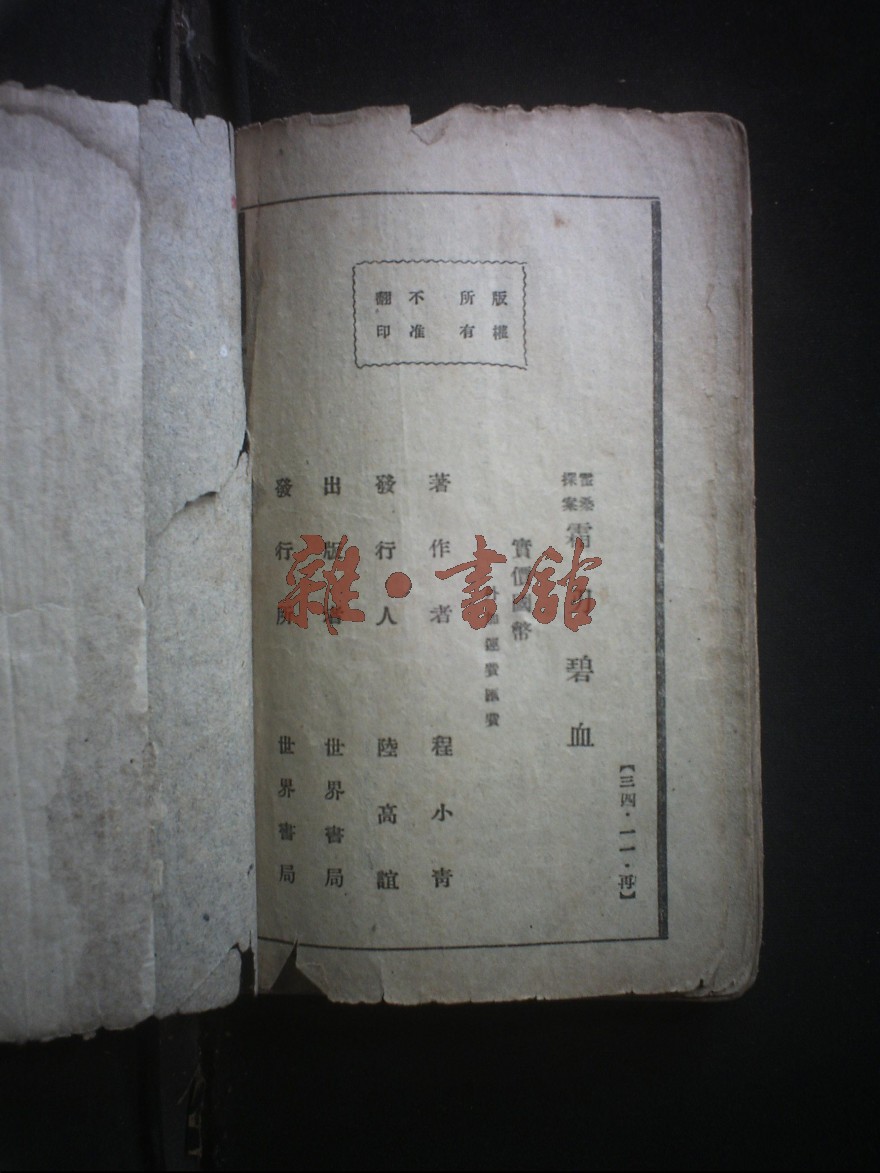 版權
所有
不准
翻印
【三四·一一·再】
霍桑
探案
霜刃碧血
實價國幣
外加運費匯費
著作者 程小青
發行人 陸高誼
出版者 世界書局
發行所 世界書局
雜·書館